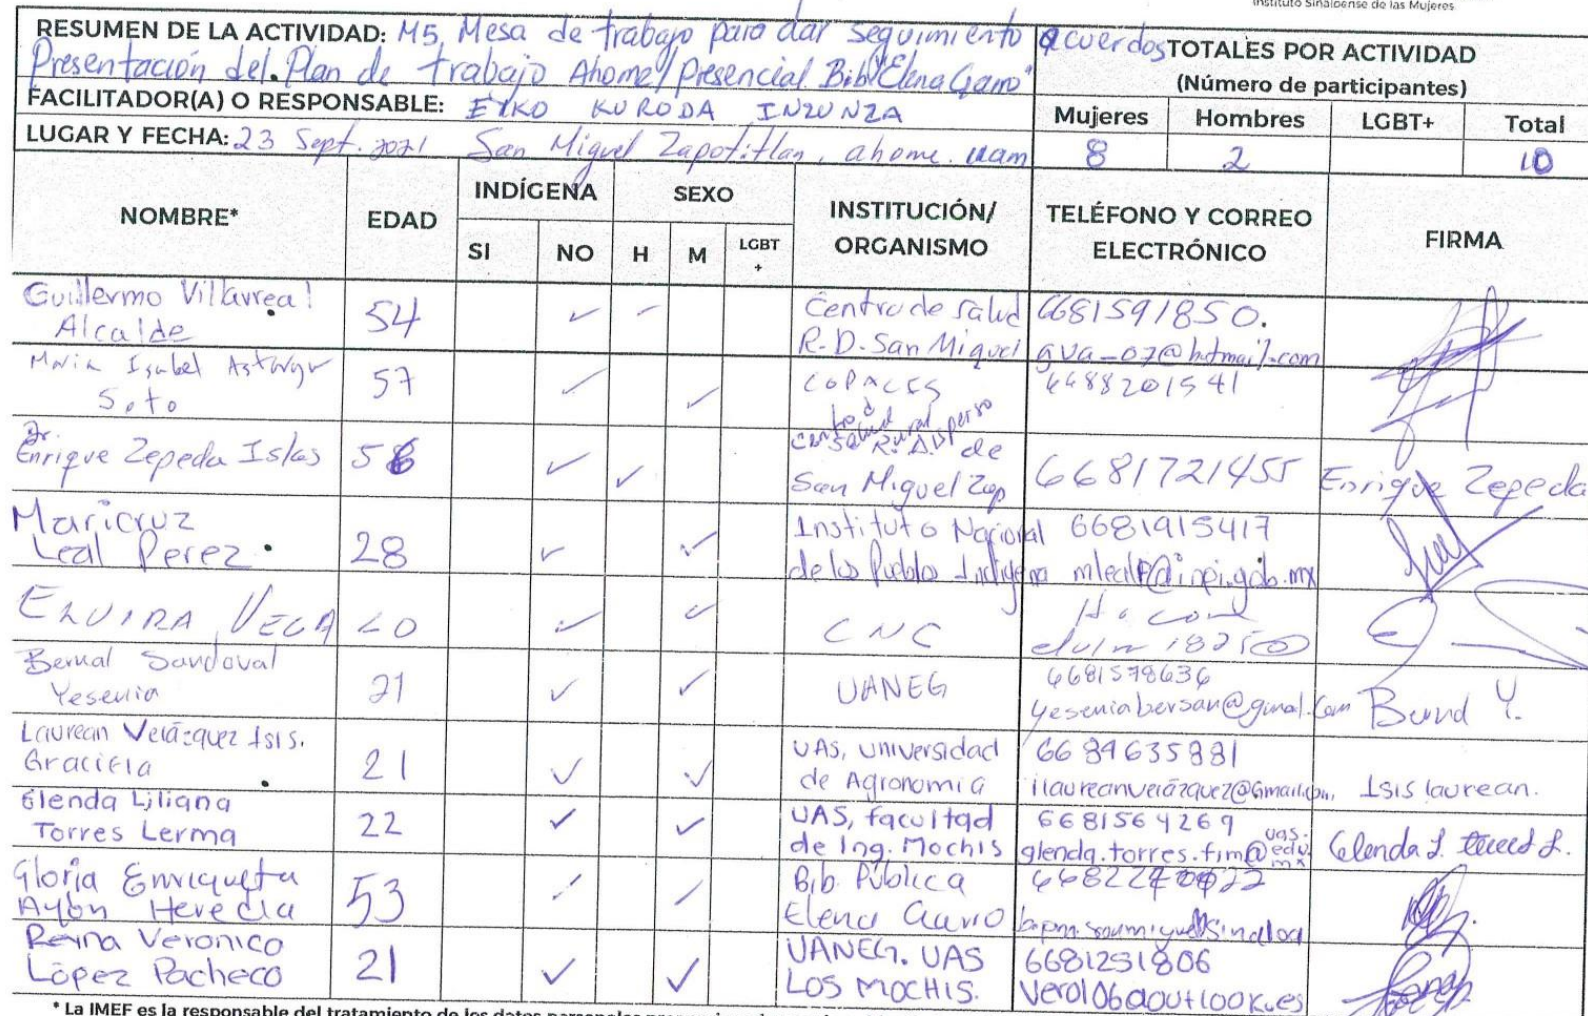 Instituto Sinaloense de las Mujeres
RESUMEN DE LA ACTIVIDAD: M5, Mesa de trabajo para dar seguimiento acuerdos
Presentación del Plan de trabajo Ahome/ Presencial. Bib "Elena Garro"
TOTALES POR ACTIVIDAD
(Número de participantes)
FACILITADOR(A) O RESPONSABLE: EIKO KURODA INZUNZA
Mujeres Hombres LGBT+ Total
LUGAR Y FECHA: 23 Sept. 2021 San Miguel Zapotitlan, ahome.
8 2 10
NOMBRE* EDAD INDÍGENA SEXO INSTITUCIÓN/ ORGANISMO TELÉFONO Y CORREO ELECTRÓNICO FIRMA
SI NO H M LGBT +
Guillermo Villarreal
Alcalde
54 ✓ –
Centro de Salud
R-D-San Miguel
6681591850.
gva_07@hotmail.com
Maria Isabel
Soto
57 ✓ ✓
COPACES
6688201541
Dr.
Enrique Zepeda Islas
✓ ✓
Centro d
Salud Rural
de
San Miguel Zap
6681721455
Enrique Zepeda
Maricruz
Leal Perez
28 ✓ ✓
Instituto Nacional
de los Pueblos Indígena
6681915417
mlealp@inpi.gob.mx
ELVIRA VEGA
✓ ✓
CNC
Bernal Sandoval
Yesenia
21 ✓ ✓
UANEG
6681578636
yeseniabersan@gmal.com
Laurean Velázquez Isis.
Graciela
21 ✓ ✓
UAS, Universidad
de Agronomia
6684635881
ilaureanvelázquez@Gmail.com
Isis laurean.
Glenda Liliana
Torres Lerma
22 ✓ ✓
UAS, facultad
de Ing. Mochis
6681564269
glenda.torres.fim@uas.edu.mx
Glenda L.
Gloria Enriqueta
Ayon Heredia
53 ✓ ✓
Bib. Pública
Elena Garro
Reina Veronico
López Pacheco
21 ✓ ✓
UANEG. UAS
LOS MOCHIS.
6681251806
Vero106@outlook.es
* La IMEF es la responsable del tratamiento de los datos personales